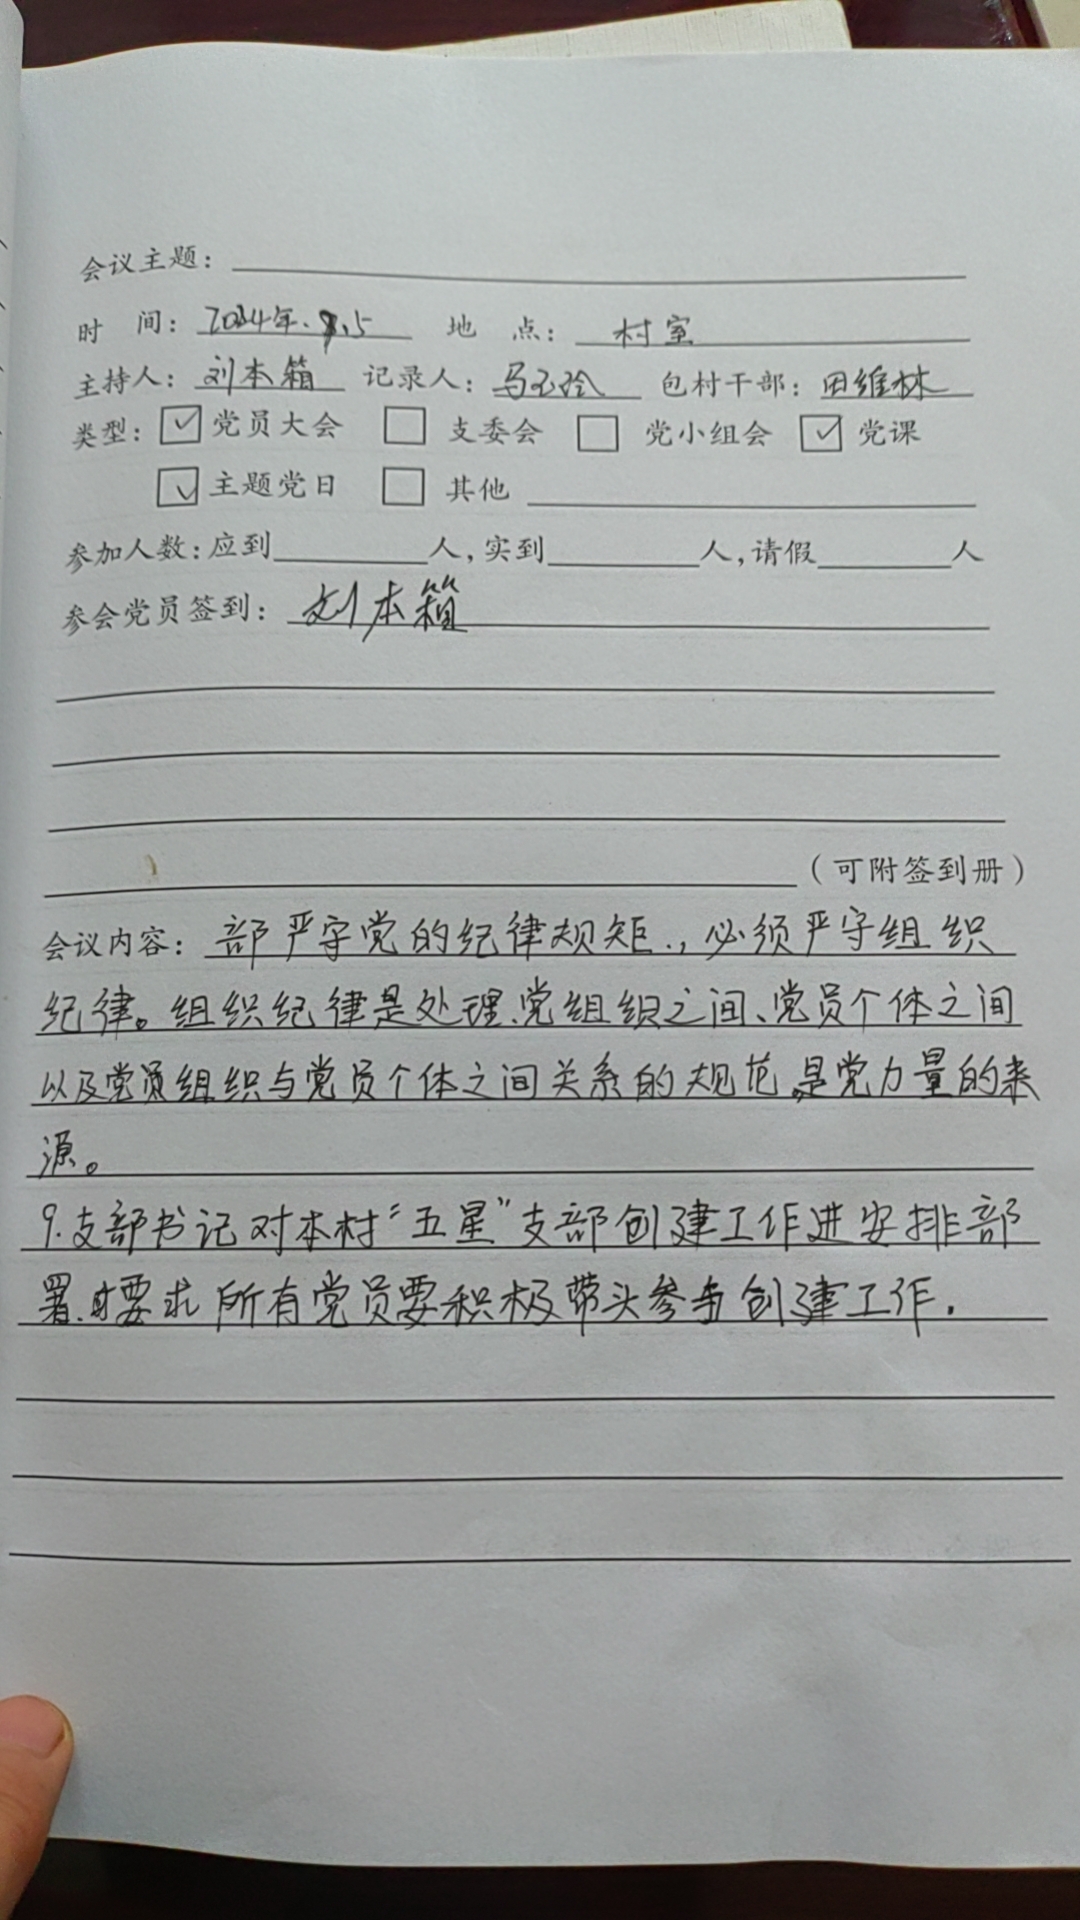 会议主题：
时 间：2024年. .5 地 点：村室
主持人：刘本箱 记录人：马玉玲 包村干部：田维林
类型：☑党员大会 □支委会 □党小组会 ☑党课
☑主题党日 □其他
参加人数：应到 人，实到 人，请假 人
参会党员签到：刘本箱
（可附签到册）
会议内容：部严守党的纪律规矩.，必须严守组织
纪律。组织纪律是处理、党组织之间、党员个体之间
以及党员组织与党员个体之间关系的规范,是党力量的来
源。
9.支部书记对本村“五星”支部创建工作进安排部
署.要求所有党员要积极带头参与创建工作.